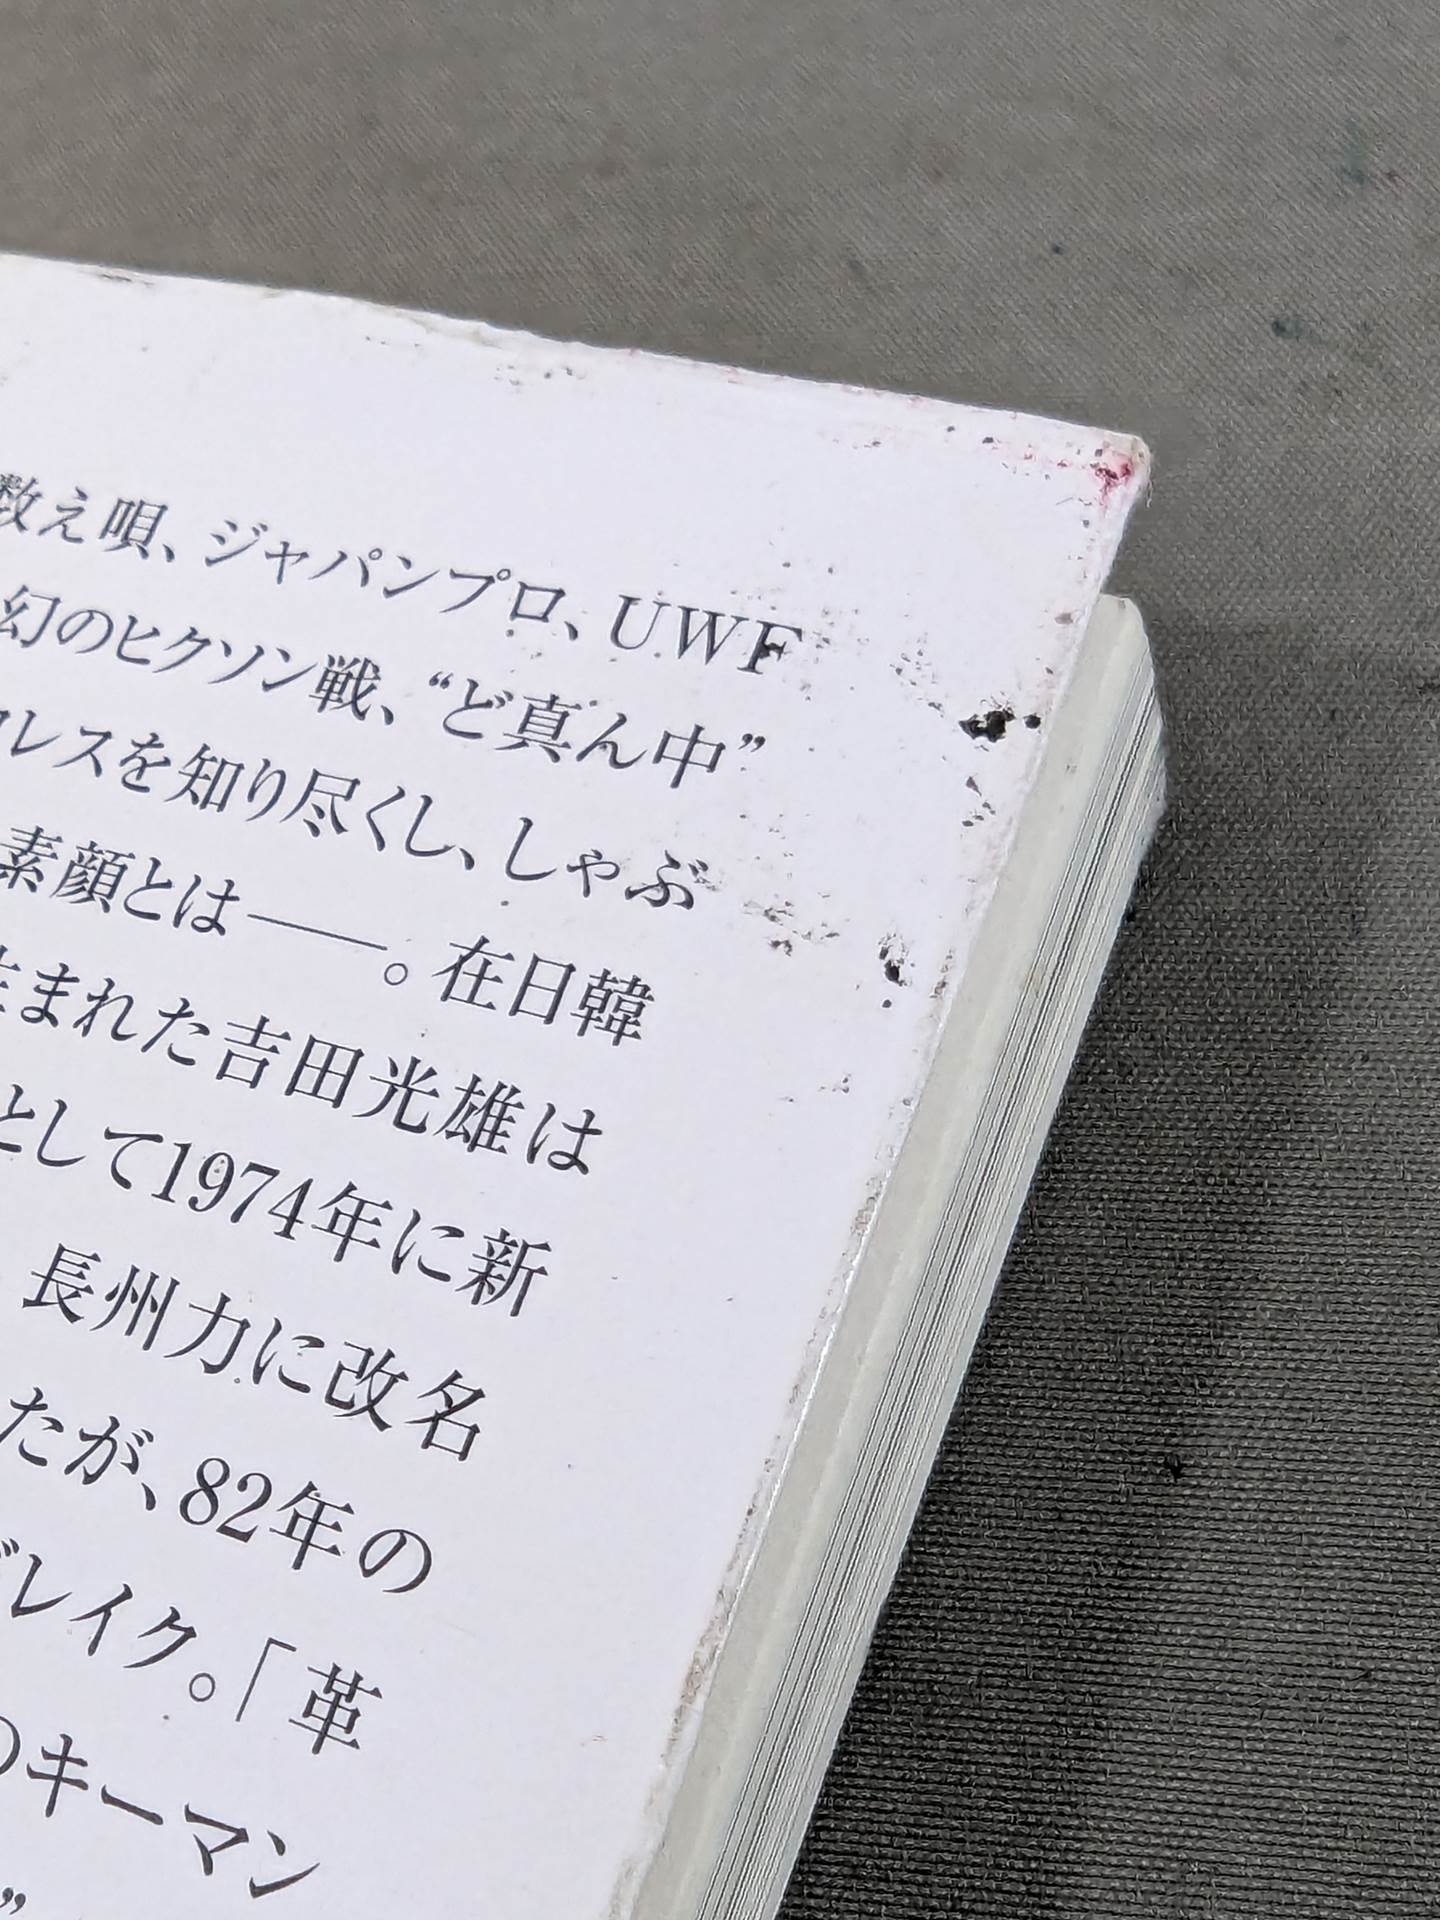 数え唄、ジャパンプロ、UWF
幻のヒクソン戦、“ど真ん中”
レスを知り尽くし、しゃぶ
素顔とは――。在日韓
生まれた吉田光雄は
として1974年に新
長州力に改名
たが、82年の
ブレイク。「革
のキーマン
”